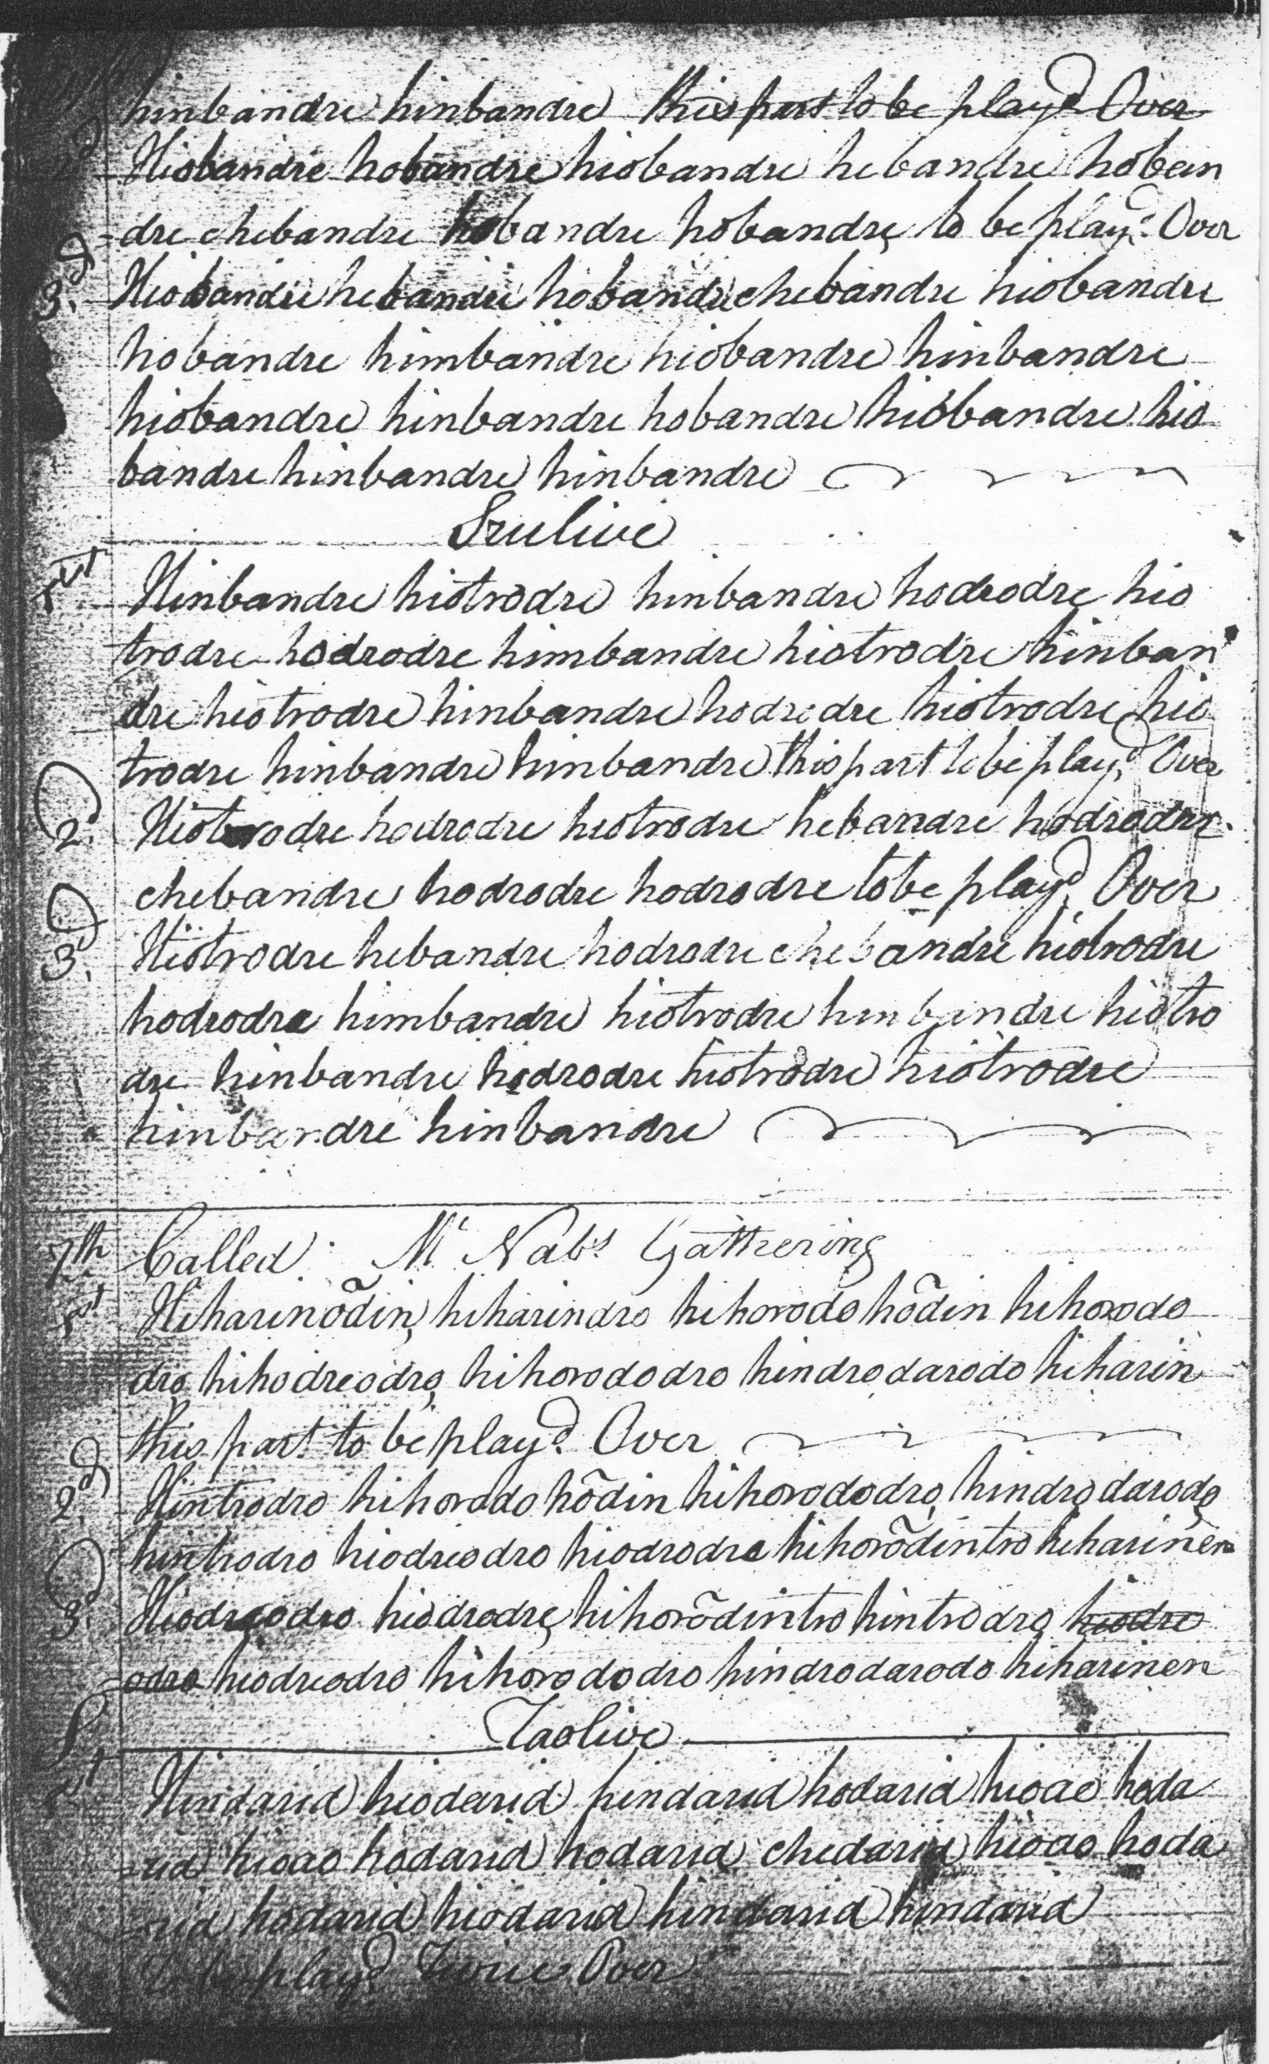 hinbandre hinbandre this part to be play.d Over
Hiobandre hobandre hiobandre hebandre hoban
dre chebandre hobandre hobandre to be play.d Over
3.d Hiobandre hebandre hobandre chebandre hiobandre
hobandre himbandre hiobandre hinbandre
hiobandre hinbandre hobandre hiobandre hio
bandre hinbandre hinbandre
1st Hinbandre hiotrodre hinbandre hodrodre hio
trodre hodrodre himbandre hiotrodre hinban
dre hiotrodre hinbandre hodrodre hiotrodre hio
trodre hinbandre hinbandre this part to be play,d Over
2.d Hiotrodre hodrodre hiotrodre hebandre hodrodre
chebandre hodrodre hodrodre to be play,d Over
3.d Hiotrodre hebandre hodrodre chebandre hiotrodre
hodrodre himbandre hiotrodre hinbandre hiotro
dre hinbandre hodrodre hiotrodre hiotrodre
hinbandre hinbandre
7th Called Mc Nabs Gathering
1st Hiharinõdin, hiharindro hihorodo hõdin hihorodo
dro hihodreodro, hihorododro hindrodarodo hiharin
this part to be play.d Over
2.d Hintrodro hihorodo hõdin hihorododro, hindro darodo
hintrodro hiodreodro hiodrodre hihorõdintro hiharinen
3.d Hiodreodro hiodrodre, hihorõdintro hintrodro hiodre
odro hiodreodro hihorododro hindrodarodo hiharinen
Taolive
1st Hindarid hiodarid hindarid hodarid hioao hoda
rid hioao hodarid hodarid chedarid hioao hoda
rid hodarid hiodarid hindarid hindarid
To be play.d Twice Over